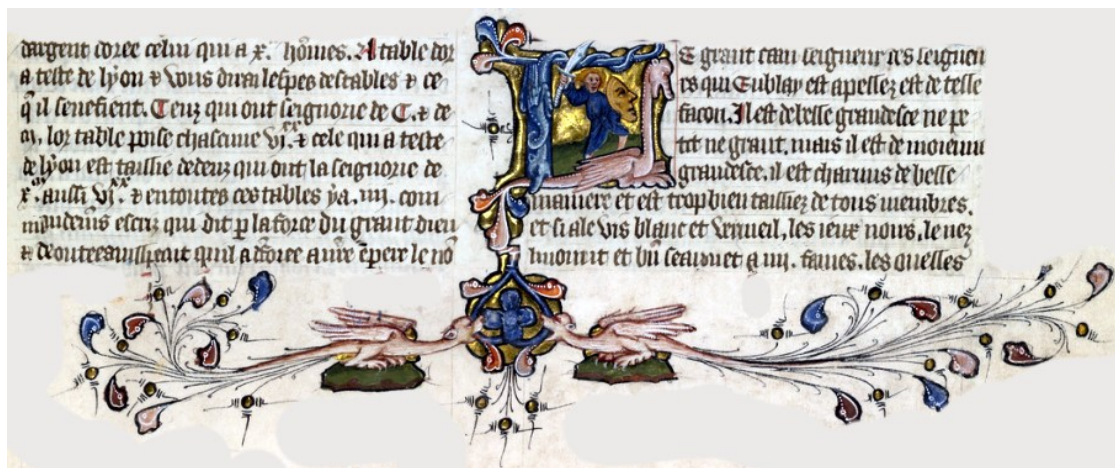 dargent doree celui qui a x. hōmes. A table dor
a teste de lyon & vous dirai lespes des tables & ce
q̄ il senefient. Ceuz qui ont seignorie de C. & de
m. lor table poise chascune vi.xx & cele qui a teste
de lyon est de ceuz qui ont la seignorie de
x.m aussi vi.xx & en toutes ces tables y a .iiii. com
mandemenz escriz qui dit p la force du grant dieu
& de qu il a done a nr̄e ēpere le nō
LE grant caan seigneur des seigneu
rs qui Cublay est apellez est de telle
facon. Il est de belle grandesce ne pe
tit ne grant. mais il est de moienne
grandesce. il est charnus de belle
maniere et est trop bien tailliez de tous membres.
et si a le vis blanc et vermeil. les ieux noirs. le nez
et bn̄ et a iiii. fames. les quelles